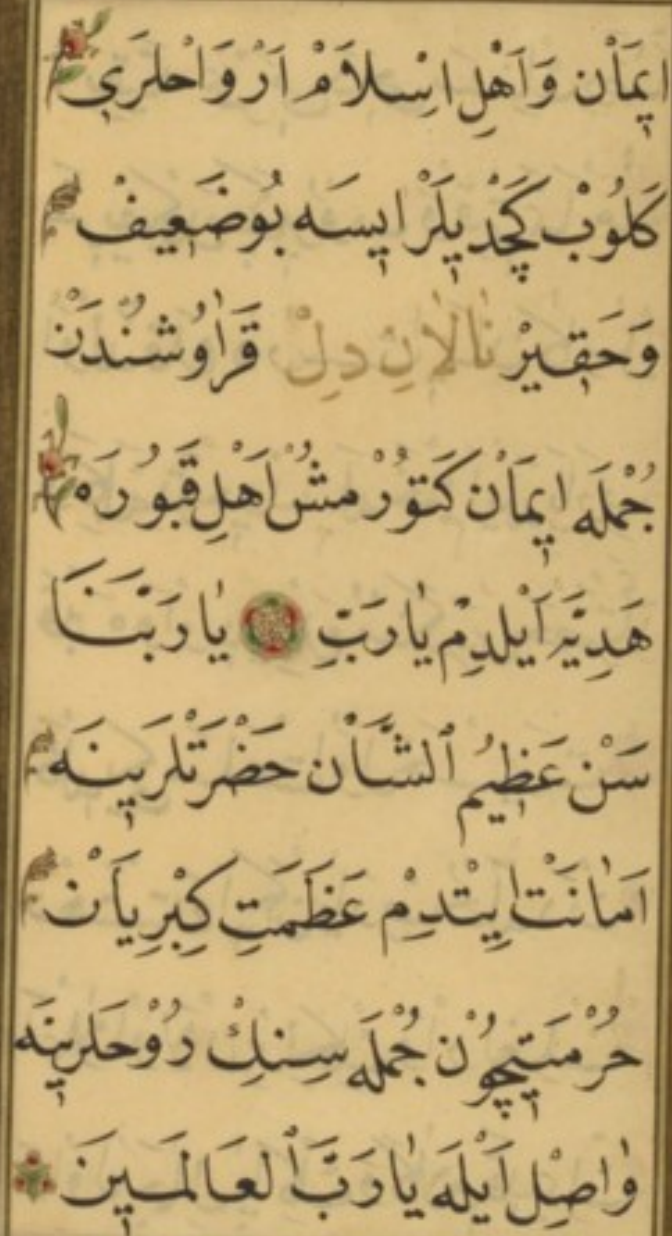 ايمَانْ وَاَهْلِ اِسْلَامْ اَرْوَاحْلَرِى
كَلُوبْ كَچْدِيلَرْ ايسَه بُوضَعِيفْ
وَحَقِيرْ نَالَانِ دِلْ قَرَاوُشُنْدَنْ
جُمْلَه ايمَانْ كَتُورْمِشْ اَهْلِ قُبُورَه
هَدِيَّه اَيْلَدِمْ يَارَبِّ يَارَبَّنَا
سَنْ عَظِيمُ ٱلشَّانْ حَضْرَتْلَرِينَه
اَمَانَتْ اِيتْدِمْ عَظَمَتِ كِبْرِيَانْ
حُرْمَتِيچُونْ جُمْلَه سِنِكْ رُوْحلَرِينَه
وَاصِلْ اَيْلَه يَارَبَّ ٱلعَالَمِينَ